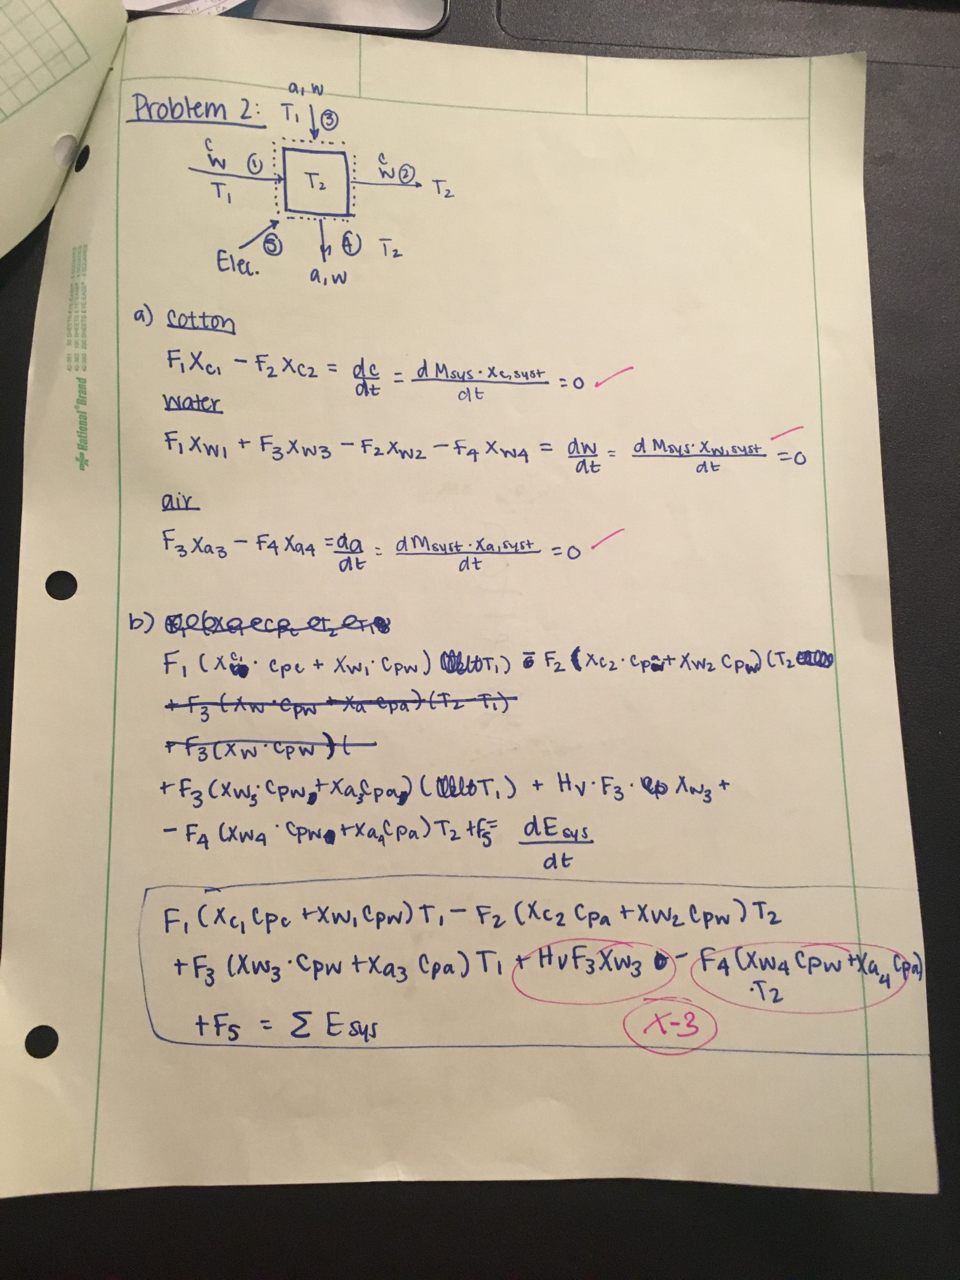 Problem 2:
a, w
T₁ ③
c
w ①
T₁
T₂
c
w ②
T₂
Elec. ⑤
④ T₂
a, w
a) cotton
F₁Xc₁ - F₂Xc₂ = dc/dt = d Msys · Xc,syst/dt = 0 ✓
water
F₁Xw₁ + F₃Xw₃ - F₂Xw₂ - F₄Xw₄ = dw/dt = d Msys · Xw,syst/dt = 0 ✓
air
F₃Xa₃ - F₄Xa₄ = da/dt = d Msyst · Xa,syst/dt = 0 ✓
b)
F₁ (Xc₁ · Cpc + Xw₁ · Cpw) (T₁) - F₂ (Xc₂ · Cpa + Xw₂ Cpw) (T₂
+ F₃ (Xw · Cpw + Xa Cpa) (T₂ - T₁)
+ F₃ (Xw · Cpw) (
+ F₃ (Xw₃ · Cpw + Xa₃ Cpa) (T₁) + Hv · F₃ · Xw₃ +
- F₄ (Xw₄ · Cpw + Xa₄ Cpa) T₂ + F₅ = dEsys/dt
F₁ (Xc₁ Cpc + Xw₁ Cpw) T₁ - F₂ (Xc₂ Cpa + Xw₂ Cpw) T₂
+ F₃ (Xw₃ · Cpw + Xa₃ Cpa) T₁ + HvF₃Xw₃ - F₄ (Xw₄ Cpw + Xa₄ Cpa)
· T₂
+ F₅ = Σ Esys
X-3
National® Brand